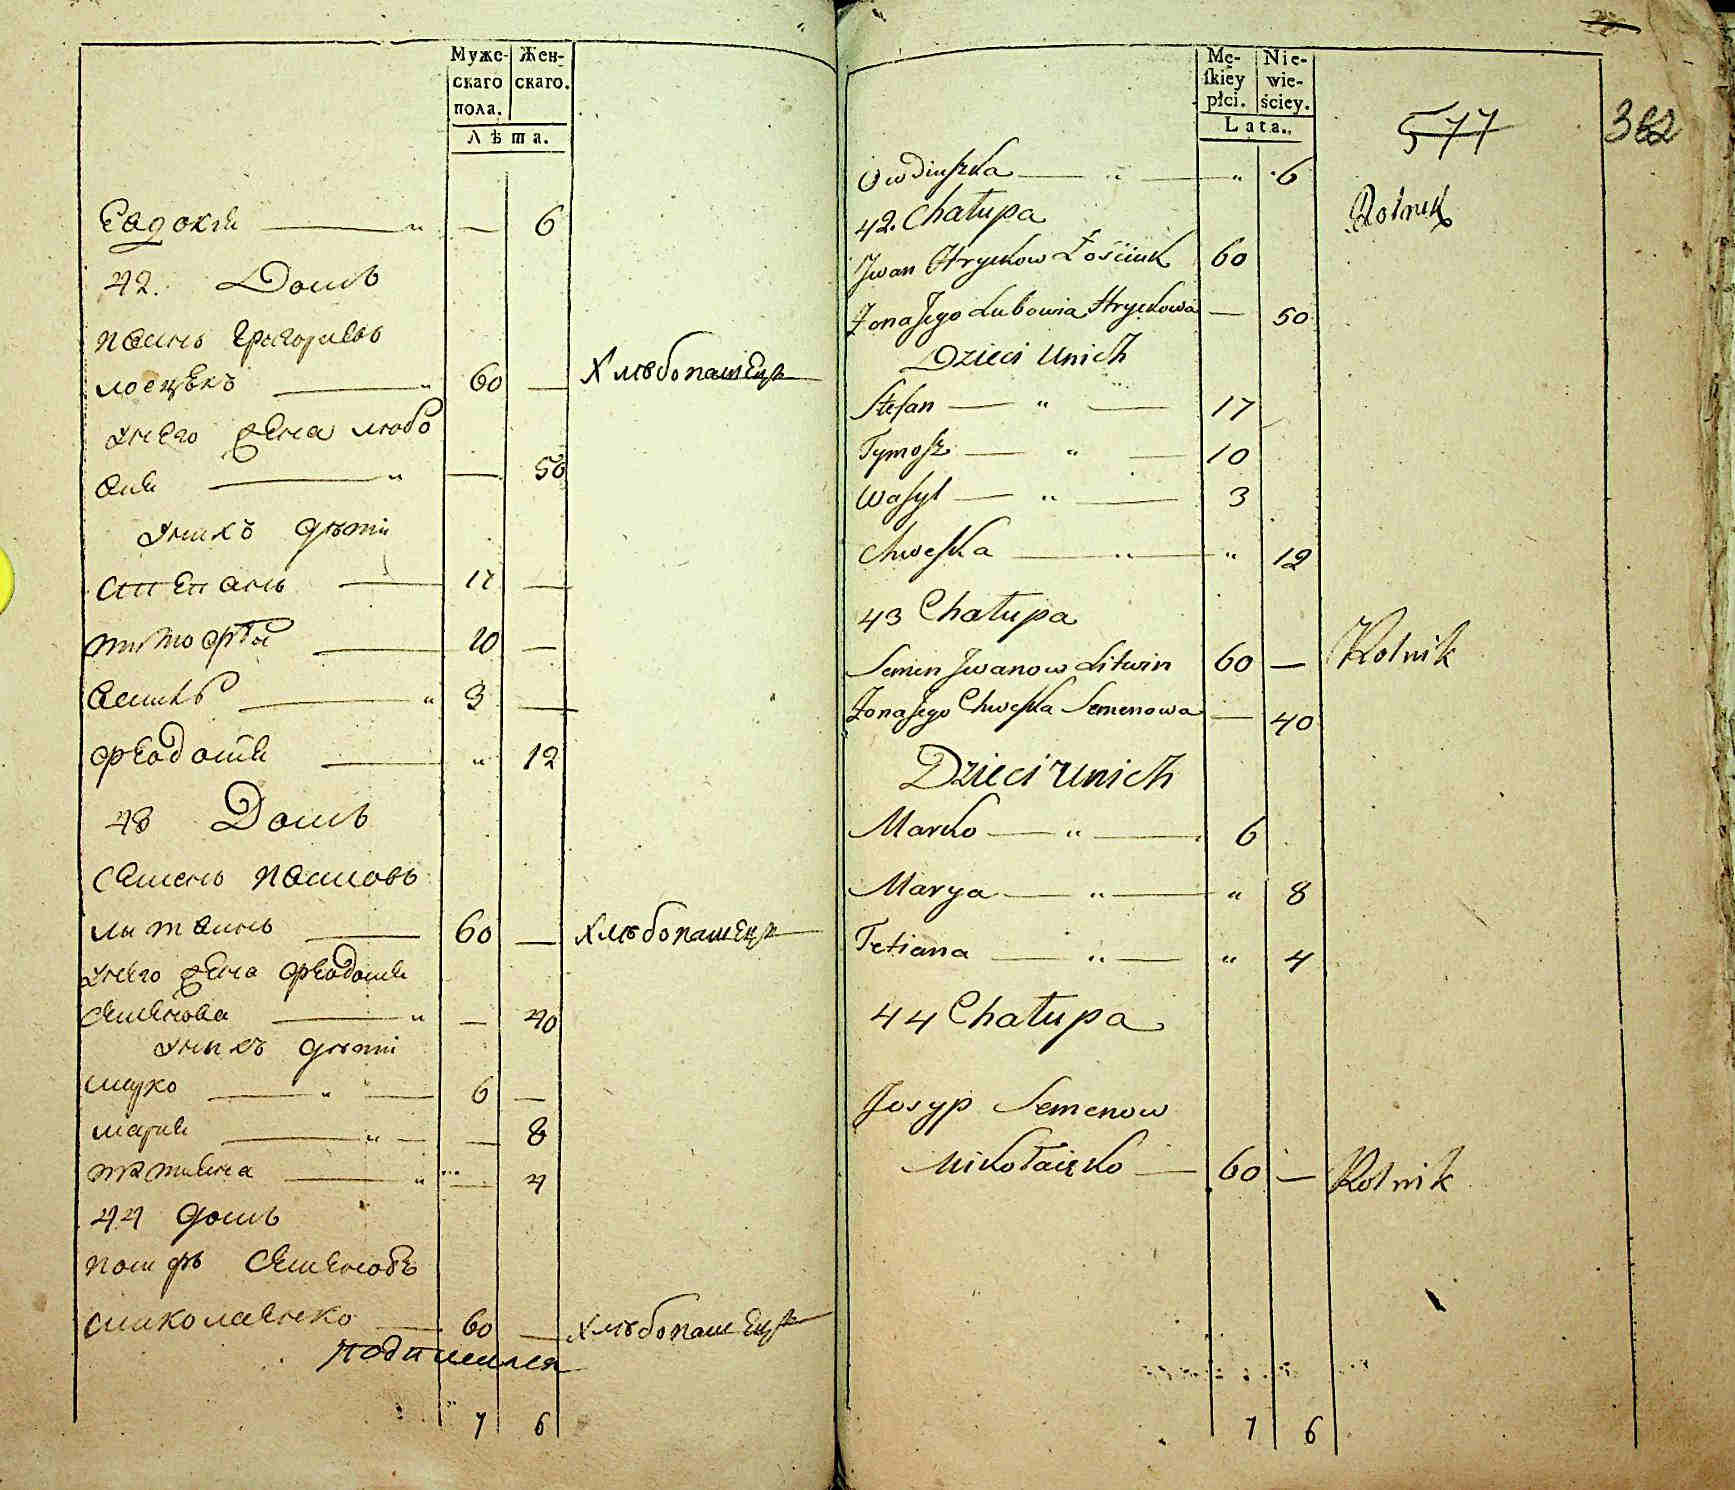 Муже- Жен-
скаго скаго.
пола.
Лѣта.
Евдокія — " — 6
42. Домъ
Иванъ Григорьевъ
Лосцѣкъ — " 60 — Хлѣбопашецъ
у него жена любо
вія — " — 50
у нихъ дѣти
Степанъ — 17 —
тимофѣй — 10 —
василь — " 3 —
феодосія — " 12
43 Домъ
Семенъ Ивановъ
литвинъ — 60 — Хлѣбопашецъ
у него жена феодосія
Семенова — " — 40
у нихъ дѣти
марко — " — 6 —
марія — " — — 8
татіяна — " — 4
44 домъ
иосифъ Семеновъ
миколаенко — 60 — Хлѣбопашецъ
7 6
Mę- Nie-
ſkiey wie-
płci. ściey.
Lata.
577
362
Owdiuszka — " — " 6
42. Chałupa Rolnik
Jwan Hryckow Łościuk 60
Żona Jego Lubowia Hryckowa — 50
Dzieci U nich
Stefan — " — 17
Tymosz — " — 10
Wasyl — " — 3
Chweska — " — " 12
43 Chałupa
Semen Jwanow Litwin 60 — Rolnik
Żona Jego Chweska Semenowa — 40
Dzieci U nich
Marko — " — 6
Marya — " — " 8
Tetiana — " — " 4
44 Chałupa
Josyp Semenow
Mikołaięko — 60 — Rolnik
7 6